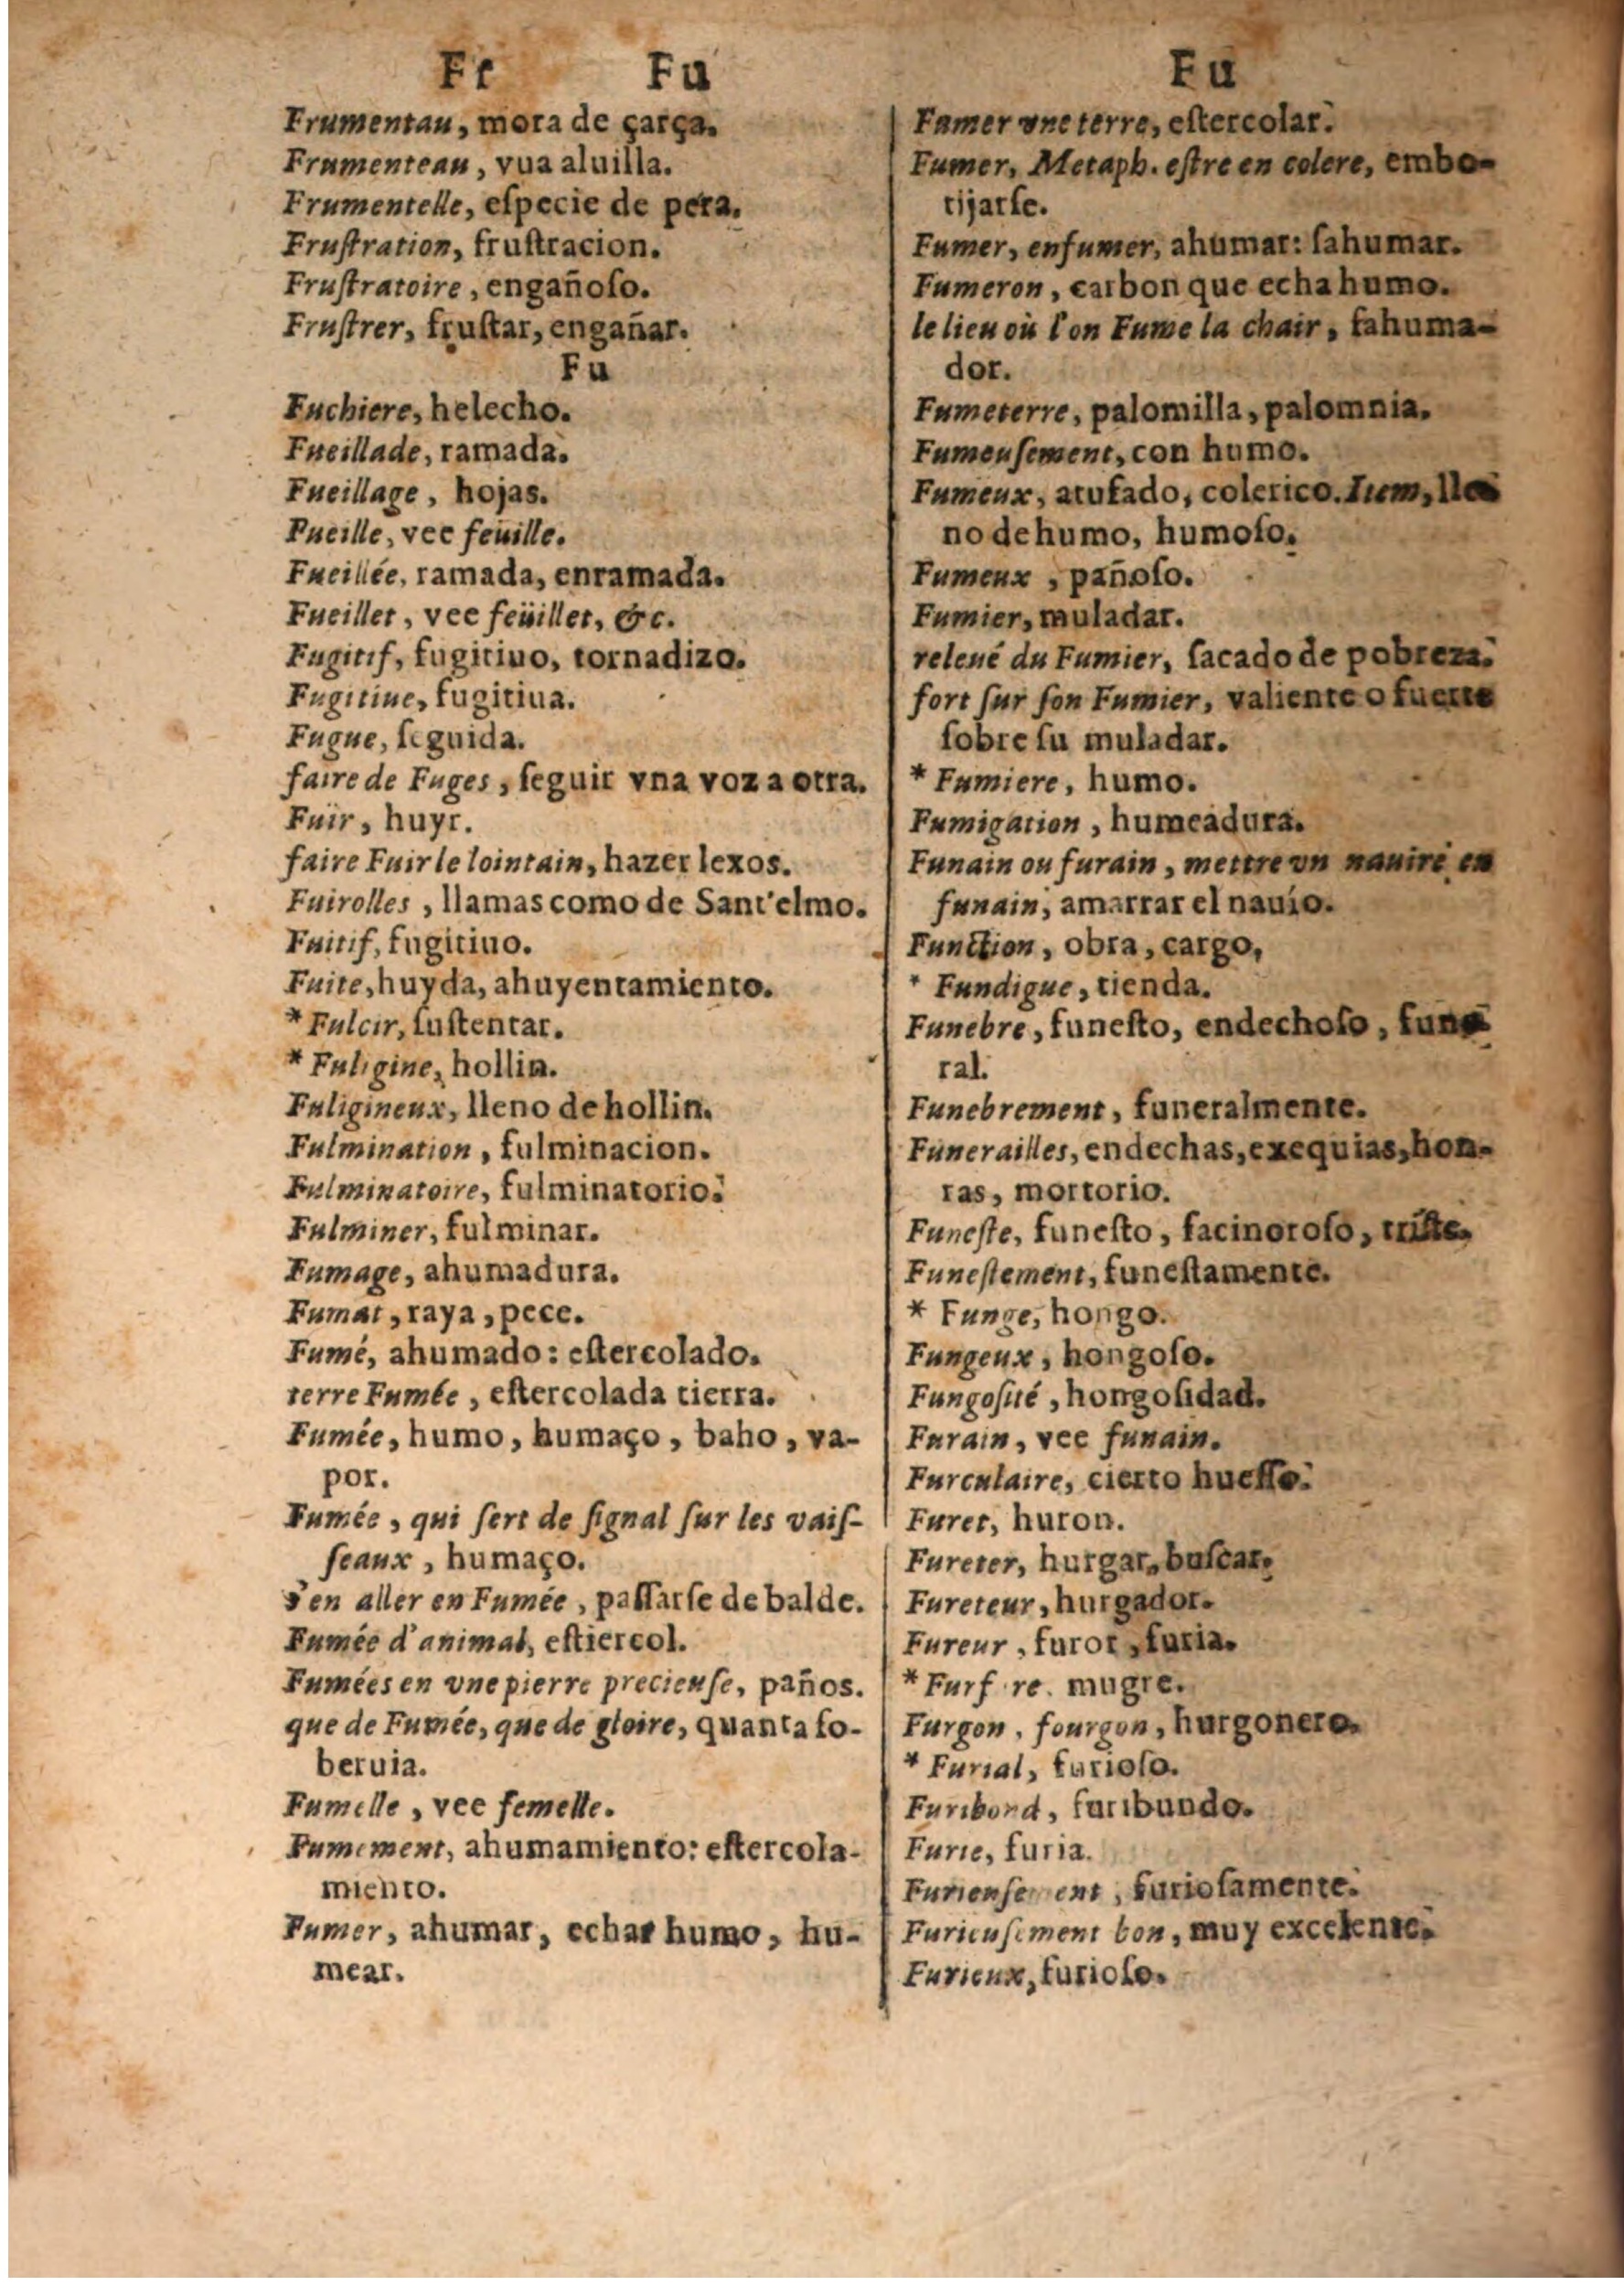 Fr Fu
Frumentau, mora de çarça.
Frumenteau, vua aluilla.
Frumentelle, eſpecie de pera.
Fruſtration, fruſtracion.
Fruſtratoire, engañoſo.
Fruſtrer, fruſtar, engañar.
Fu
Fuchiere, helecho.
Fueillade, ramada.
Fueillage, hojas.
Fueille, vee feuille.
Fueillée, ramada, enramada.
Fueillet, vee feüillet, &c.
Fugitif, fugitiuo, tornadizo.
Fugitiue, fugitiua.
Fugue, ſeguida.
faire de Fuges, ſeguir vna voz a otra.
Fuir, huyr.
faire Fuir le lointain, hazer lexos.
Fuirolles, llamas como de Sant'elmo.
Fuitif, fugitiuo.
Fuite, huyda, ahuyentamiento.
* Fulcir, ſuſtentar.
* Fuligine, hollin.
Fuligineux, lleno de hollin.
Fulmination, fulminacion.
Fulminatoire, fulminatorio.
Fulminer, fulminar.
Fumage, ahumadura.
Fumat, raya, pece.
Fumé, ahumado: eſtercolado.
terre Fumée, eſtercolada tierra.
Fumée, humo, humaço, baho, va-
por.
Fumée, qui ſert de ſignal ſur les vaiſ-
ſeaux, humaço.
s'en aller en Fumée, paſſarſe de balde.
Fumée d'animal, eſtiercol.
Fumées en vne pierre precieuſe, paños.
que de Fumée, que de gloire, quanta ſo-
beruia.
Fumelle, vee femelle.
Fumement, ahumamiento: eſtercola-
miento.
Fumer, ahumar, echar humo, hu-
mear.
Fu
Fumer vne terre, eſtercolar.
Fumer, Metaph. eſtre en colere, embo-
tijarſe.
Fumer, enfumer, ahumar: ſahumar.
Fumeron, carbon que echa humo.
le lieu où l'on Fume la chair, ſahuma-
dor.
Fumeterre, palomilla, palomnia.
Fumeuſement, con humo.
Fumeux, atufado, colerico. Item, lle-
no de humo, humoſo.
Fumeux, pañoſo.
Fumier, muladar.
releué du Fumier, ſacado de pobreza.
fort ſur ſon Fumier, valiente o fuerte
ſobre ſu muladar.
* Fumiere, humo.
Fumigation, humeadura.
Funain ou furain, mettre vn nauire en
funain, amarrar el nauio.
Function, obra, cargo,
* Fundigue, tienda.
Funebre, funeſto, endechoſo, fune-
ral.
Funebrement, funeralmente.
Funerailles, endechas, exequias, hon-
ras, mortorio.
Funeſte, funeſto, facinoroſo, triſte.
Funeſtement, funeſtamente.
* Funge, hongo.
Fungeux, hongoſo.
Fungoſité, hongoſidad.
Furain, vee funain.
Furculaire, cierto hueſſo.
Furet, huron.
Fureter, hurgar, buſcar.
Fureteur, hurgador.
Fureur, furor, furia.
* mugre.
Furgon, fourgon, hurgonero.
* Furial, furioſo.
Furibond, furibundo.
Furie, furia.
Furieuſement, furioſamente.
Furieuſement bon, muy excelente.
Furieux, furioſo.